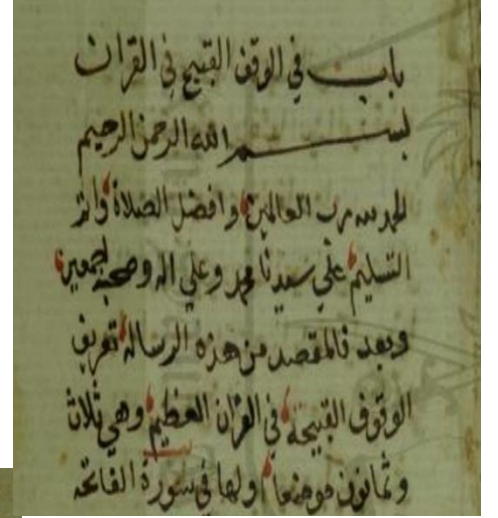 باب في الوقف القبيح في القران
بسم الله الرحمن الرحيم
الحمد لله رب العالمين وافضل الصلاة واتم
التسليم علي سيدنا محمد وعلي اله وصحبه اجمعين
وبعد فالمقصد من هذه الرسالة تعريف
الوقوف القبيحة في القران العظيم وهي ثلاث
وثمانون موضعا اولها في سورة الفاتحه